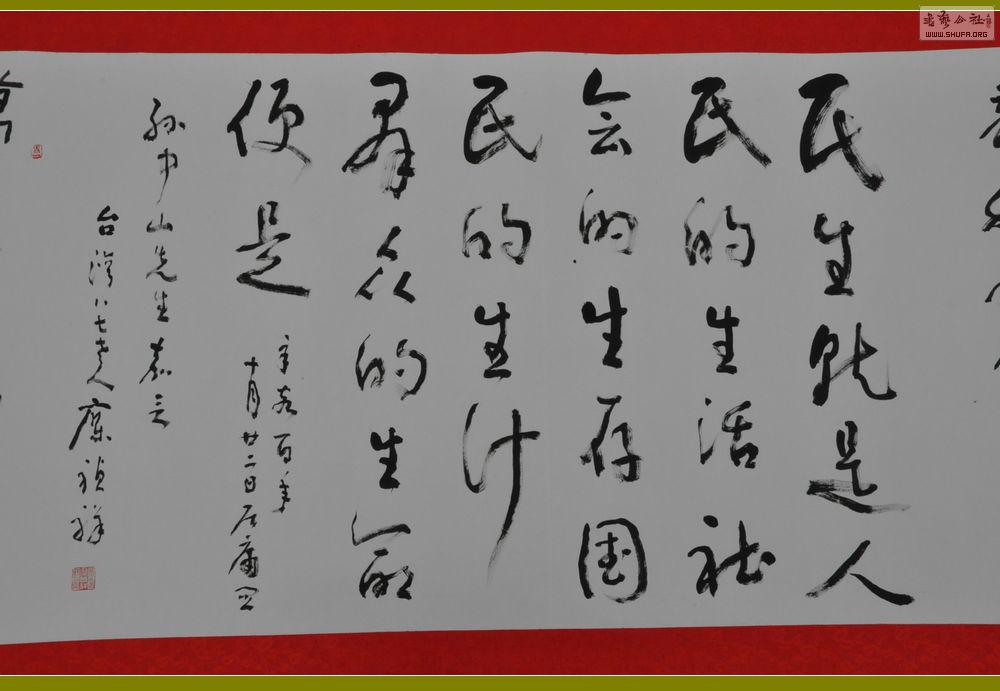 民生就是人
民的生活社
会的生存国
民的生计
羣众的生命
便是
辛亥百年
十月廿二日居庸
孙中山先生嘉言
台湾八七老人廖祯祥
书艺公社
WWW.SHUFA.ORG